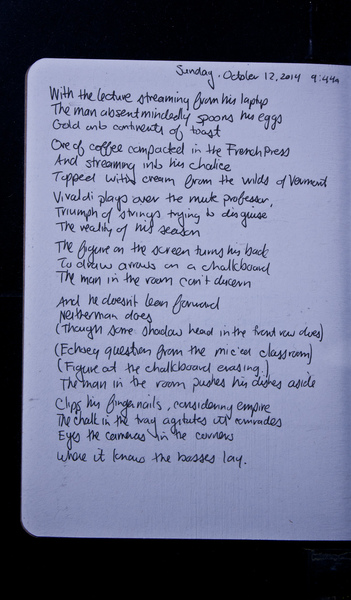 Sunday. October 12, 2014 9:44a
With the lecture streaming from his laptop
The man absentmindedly spoons his eggs
Gold onto continents of toast
Ore of coffee compacted in the French Press
And streaming into his chalice
Topped with cream from the wilds of Vermont
Vivaldi plays over the mute professor,
Triumph of strings trying to disguise
The reality of his season
The figure on the screen turns his back
To draw arrows on a chalkboard
The man in the room can't discern
And he doesn't lean forward
Neither man does
(Though some shadow head in the front row does)
(Echoey question from the mic'ed classroom)
(Figure at the chalkboard erasing.)
The man in the room pushes his dishes aside
Clips his fingernails, considering empire
The chalk in the tray agitates its comrades
Eyes the cameras in the corners
Where it knows the bosses lay.